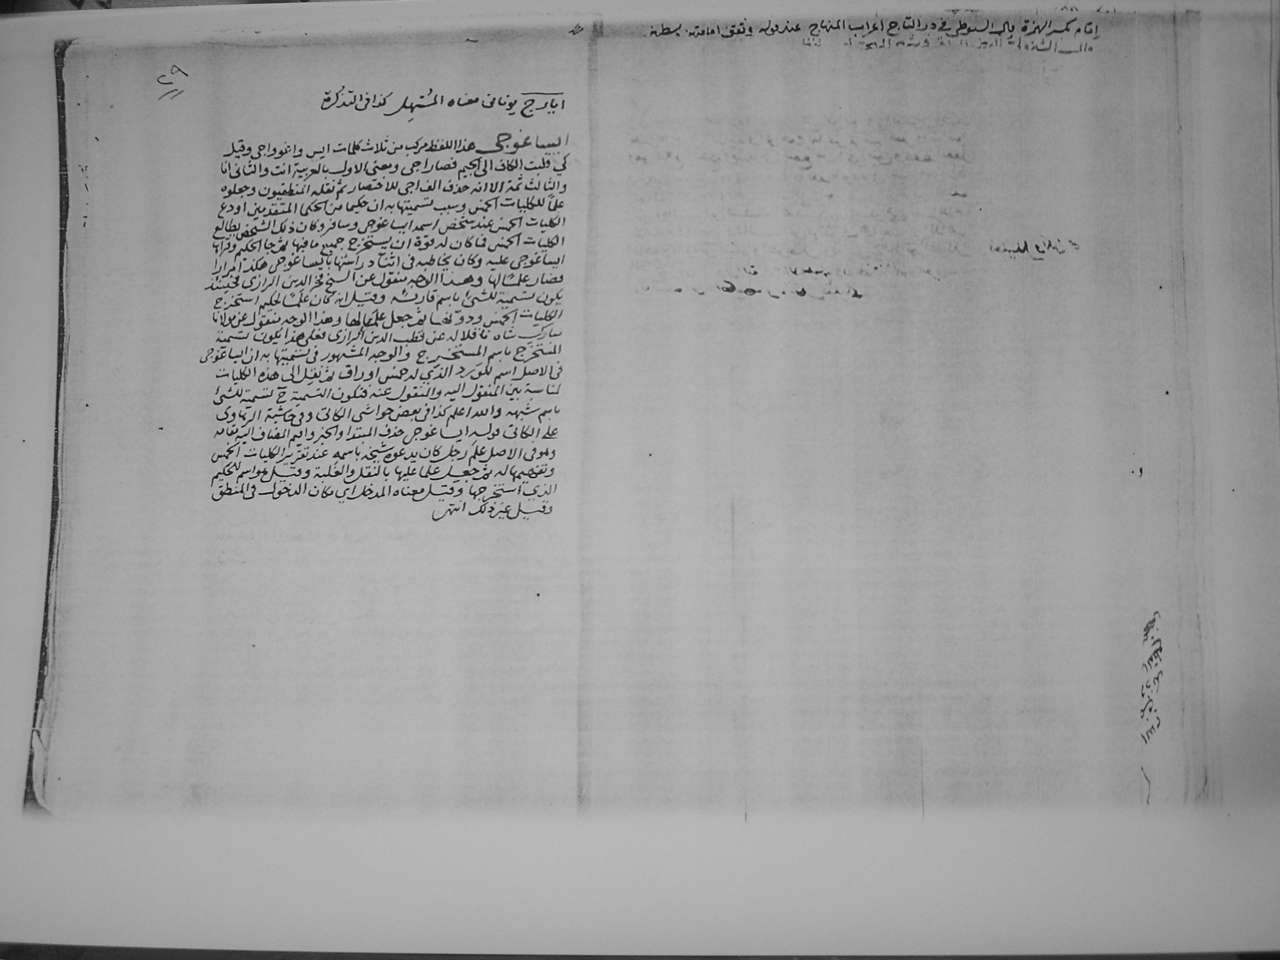 إقام بكسر الهمزة قال السيوطي في در التاج اعراب المنهاج عند قوله وتقق اقامته بسطه
٢٩
ايارج يوناني معناه المُسْهِل كذا في التذكرة
ايساغوجي هذا اللفظ مركب من ثلاث كلمات ايس واغو واجي وقيل
كي قلبت الكاف الى الجيم فصار اجي ومعنى الاول بالعربية انت والثاني انا
والثالث ثمة الا انه حذف الف اجي للاختصار ثم نقله المنطقيون وجعلوه
علماً للكليات الخمس وسبب تسميتها به ان حكيما من الحكما المتقدمين اودع
الكليات الخمس عند شخص اسمه ايساغوجي وسافر وكان ذلك الشخص يطالع
الكليات الخمس فما كان له قوة ان يستخرج جميع ما فيها ثم جا الحكيم وقراها
ايساغوجي عليه وكان يخاطبه في اثنا دراستها يا ايساغوجي هكذا مرارا
فصار علما لها وهذا الوجه منقول عن الشيخ فخر الدين الرازي فحينئذ
يكون تسمية للشئ باسم قارئه وقيل انه كان علما لحكيم استخرج
الكليات الخمس ودونها ثم جعل علما لها وهذا الوجه منقول عن مولانا
مبارك شاه ناقلا له عن قطب الدين الرازي فعلى هذا يكون تسمية
المستخرج باسم المستخرج والوجه المشهور في تسميتها به ان ايساغوجي
في الاصل اسم للورد الذي له خمس اوراق ثم نقل الى هذه الكليات
لمناسبة بين المنقول اليه والمنقول عنه فتكون التسمية ح تسمية للشئ
باسم شبهه والله اعلم كذا في بعض حواشي الكاتي وفي حاشية الرهاوي
على الكاتي قوله ايساغوجي حذف المبتدا والخبر واقيم المضاف اليه مقامه
وهو في الاصل علم رجل كان يدعوه شيخه باسمه عند تقرير الكليات الخمس
وتفهيمها له ثم جعل علما عليها بالنقل والغلبة وقيل هو اسم للحكيم
الذي استخرجها وقيل معناه المدخل اي مكان الدخول في المنطق
وقيل غير ذلك انتهى